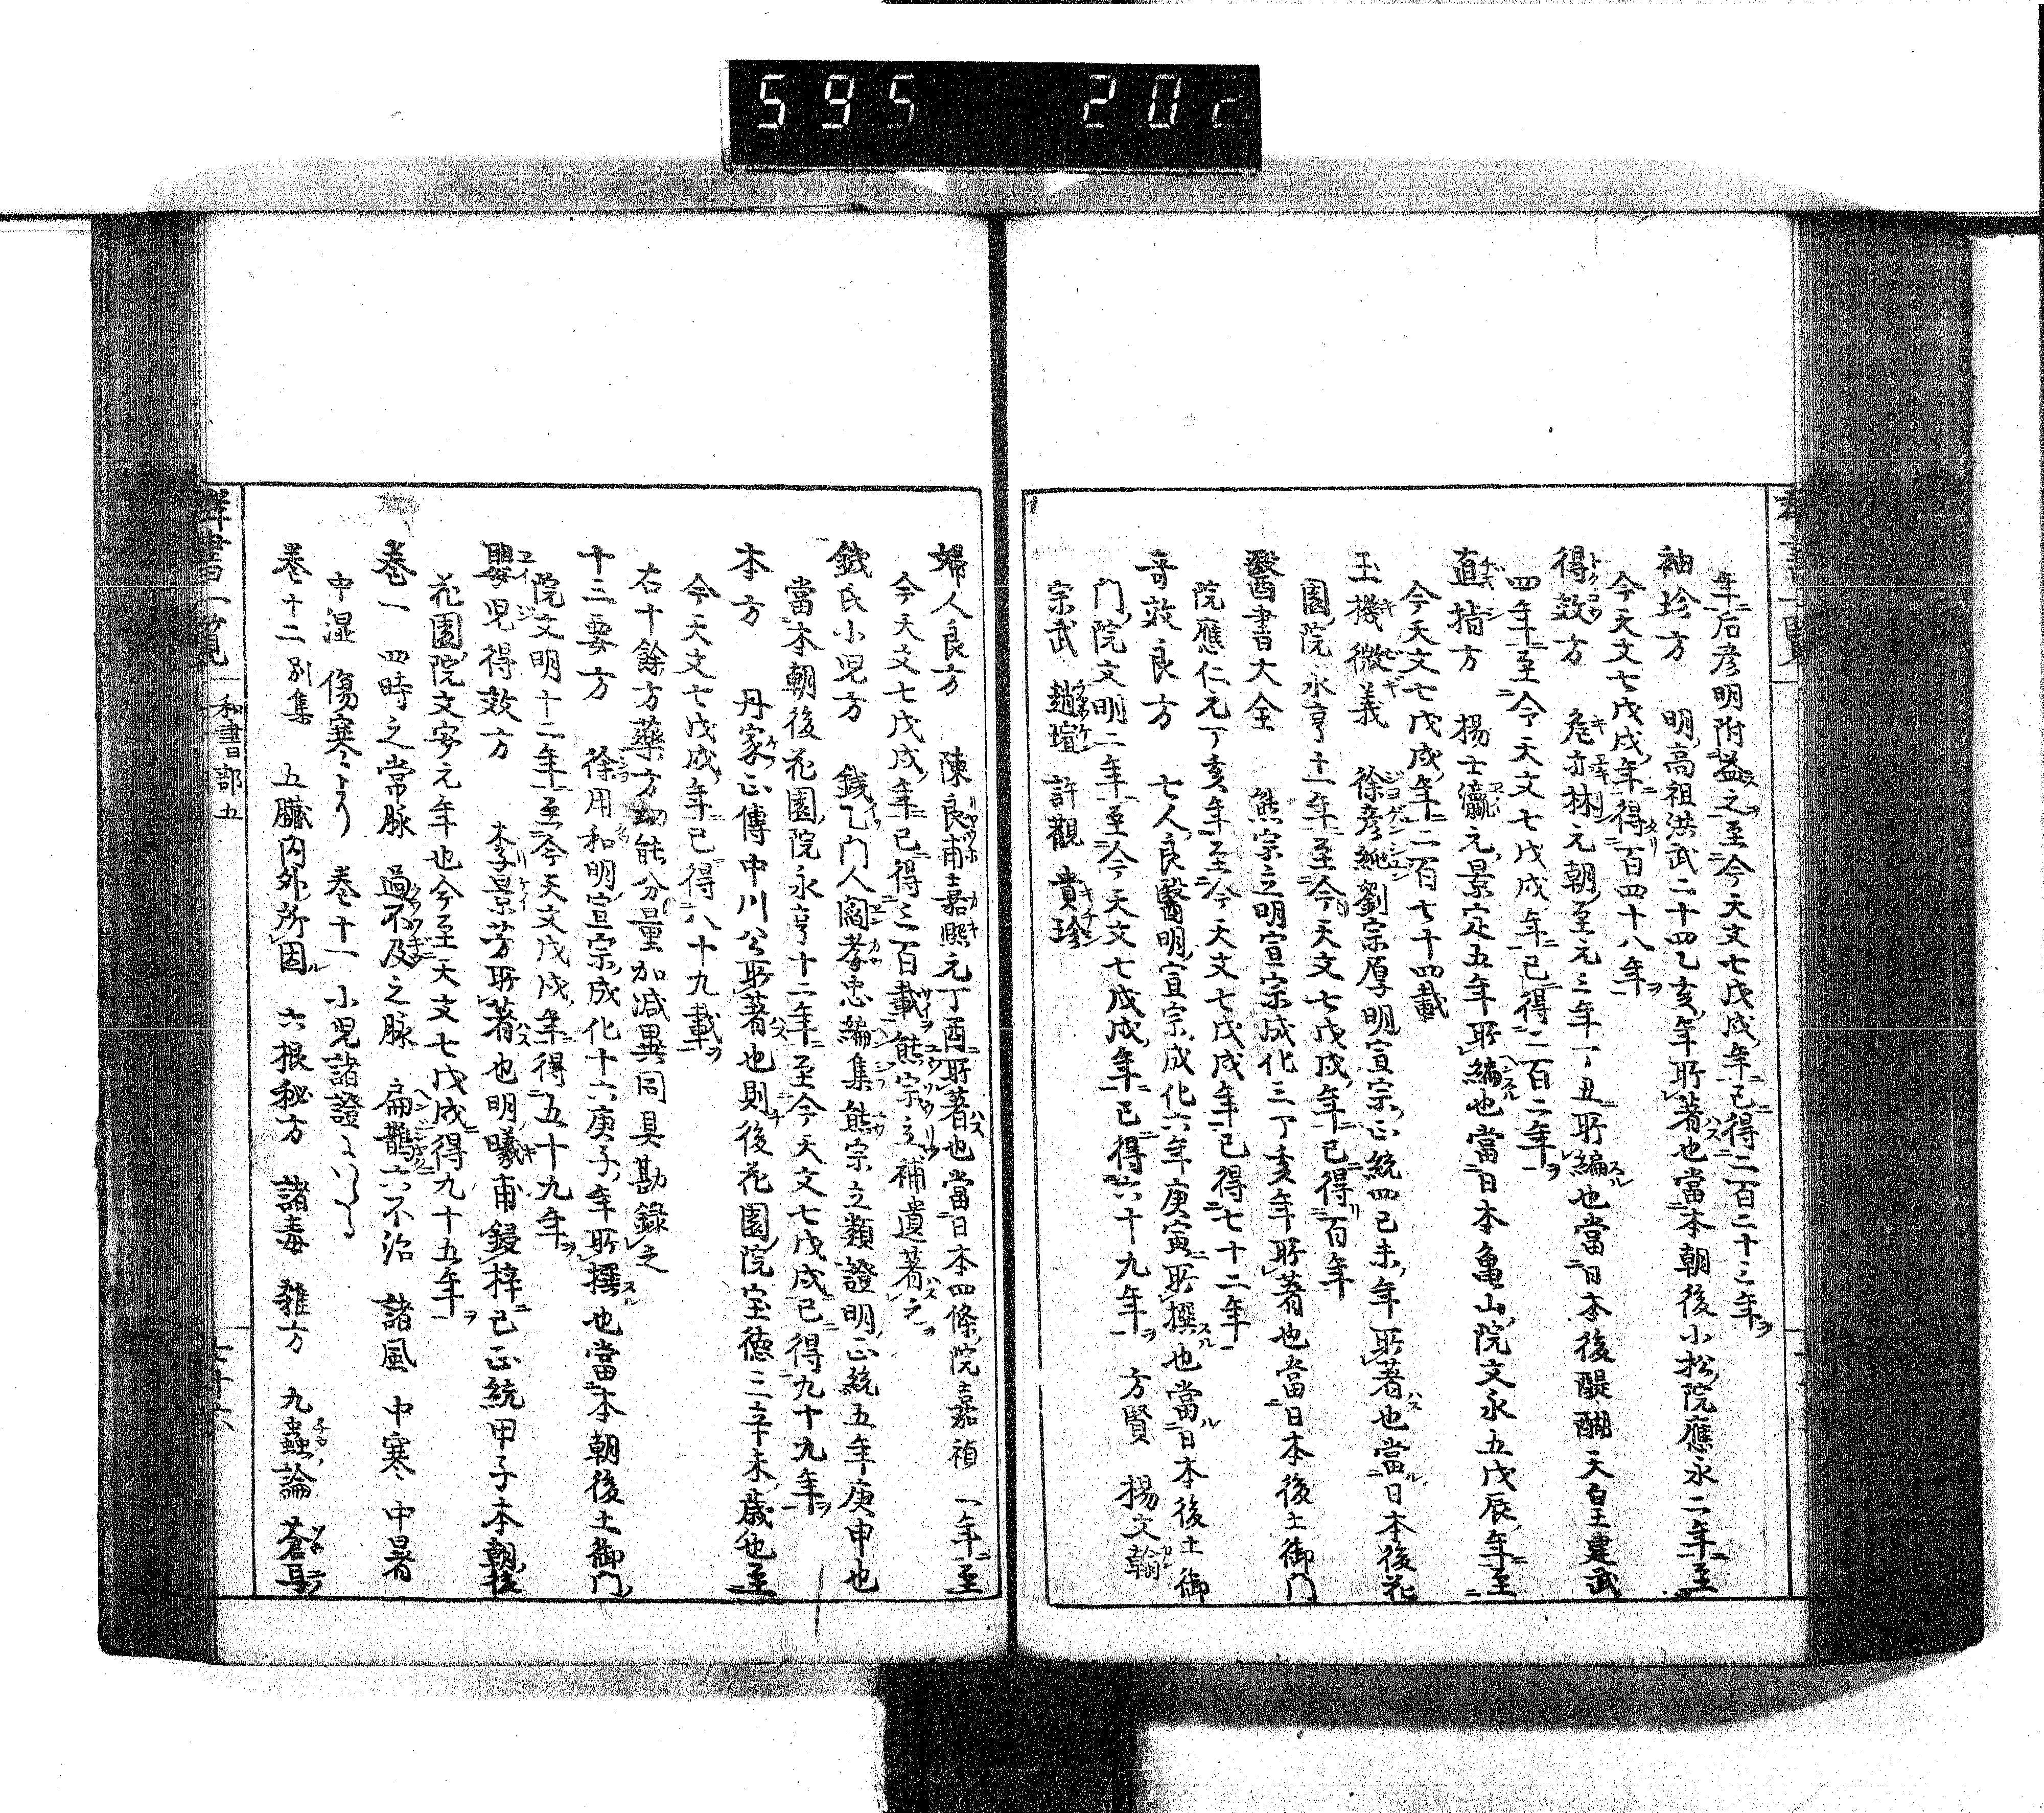 595 202
年后彦明附益之至今天文七戊戌年已得二百二十三年
袖珍方 明高祖洪武二十四乙亥年所著也當本朝後小松院應永二年至
今天文七戊戌年得百四十八年
得效方 危亦林元朝至元三年丁丑所編也當日本後醍醐天皇建武
四年至今天文七戊戌年已得二百二年
直指方 楊士瀛元景定五年所編也當日本亀山院文永五戊辰年至
今天文七戊戌年二百七十四載
玉機微義 徐彦純劉宗厚明宣宗正統四己未年所著也當日本後花
園院永亨十一年至今天文七戊戌年已得百年
醫書大全 熊宗立明宣宗成化三丁亥年所著也當日本後土御門
院應仁元丁亥年至今天文七戊戌年已得七十二年
奇效良方 七人良醫明宣宗成化六年庚寅所撰也當日本後土御
門院文明二年至今天文七戊戌年已得六十九年 方賢 楊文翰
宗武 趙瑄 許觀 貴珍
婦人良方 陳良甫嘉熙元丁酉所著也當日本四條院嘉禎 一年至
今天文七戊戌年已得三百載熊宗立補遺著之
錢氏小児方 錢乙門人閻孝忠編集熊宗立類證明正統五年庚申也
當本朝後花園院永亨十二年至今天文七戊戌已得九十九年
本方 丹家正傳中川公所著也則後花園院宝徳三辛未歳也至
今天文七戊戌年已得八十九載
右十餘方藥方功能分量加减異同具勘錄之
十三要方 徐用和明宣宗成化十六庚子年所撰也當本朝後土御門
院文明十二年至今天文戊戌年得五十九年
嬰児得效方 李景芳所著也明曦甫鋟梓已正統甲子本朝後
花園院文安元年也今至天文七戊戌得九十五年
巻一 四時之常脉 過不及之脉 扁鵲六不治 諸風 中寒 中暑
中湿 傷寒まり 巻十一 小児諸證にいたる
巻十二別集 五臓内外所因 六根秘方 諸毒 雜方 九蟲論 蒼耳
群書一覧 和書部五 七十六